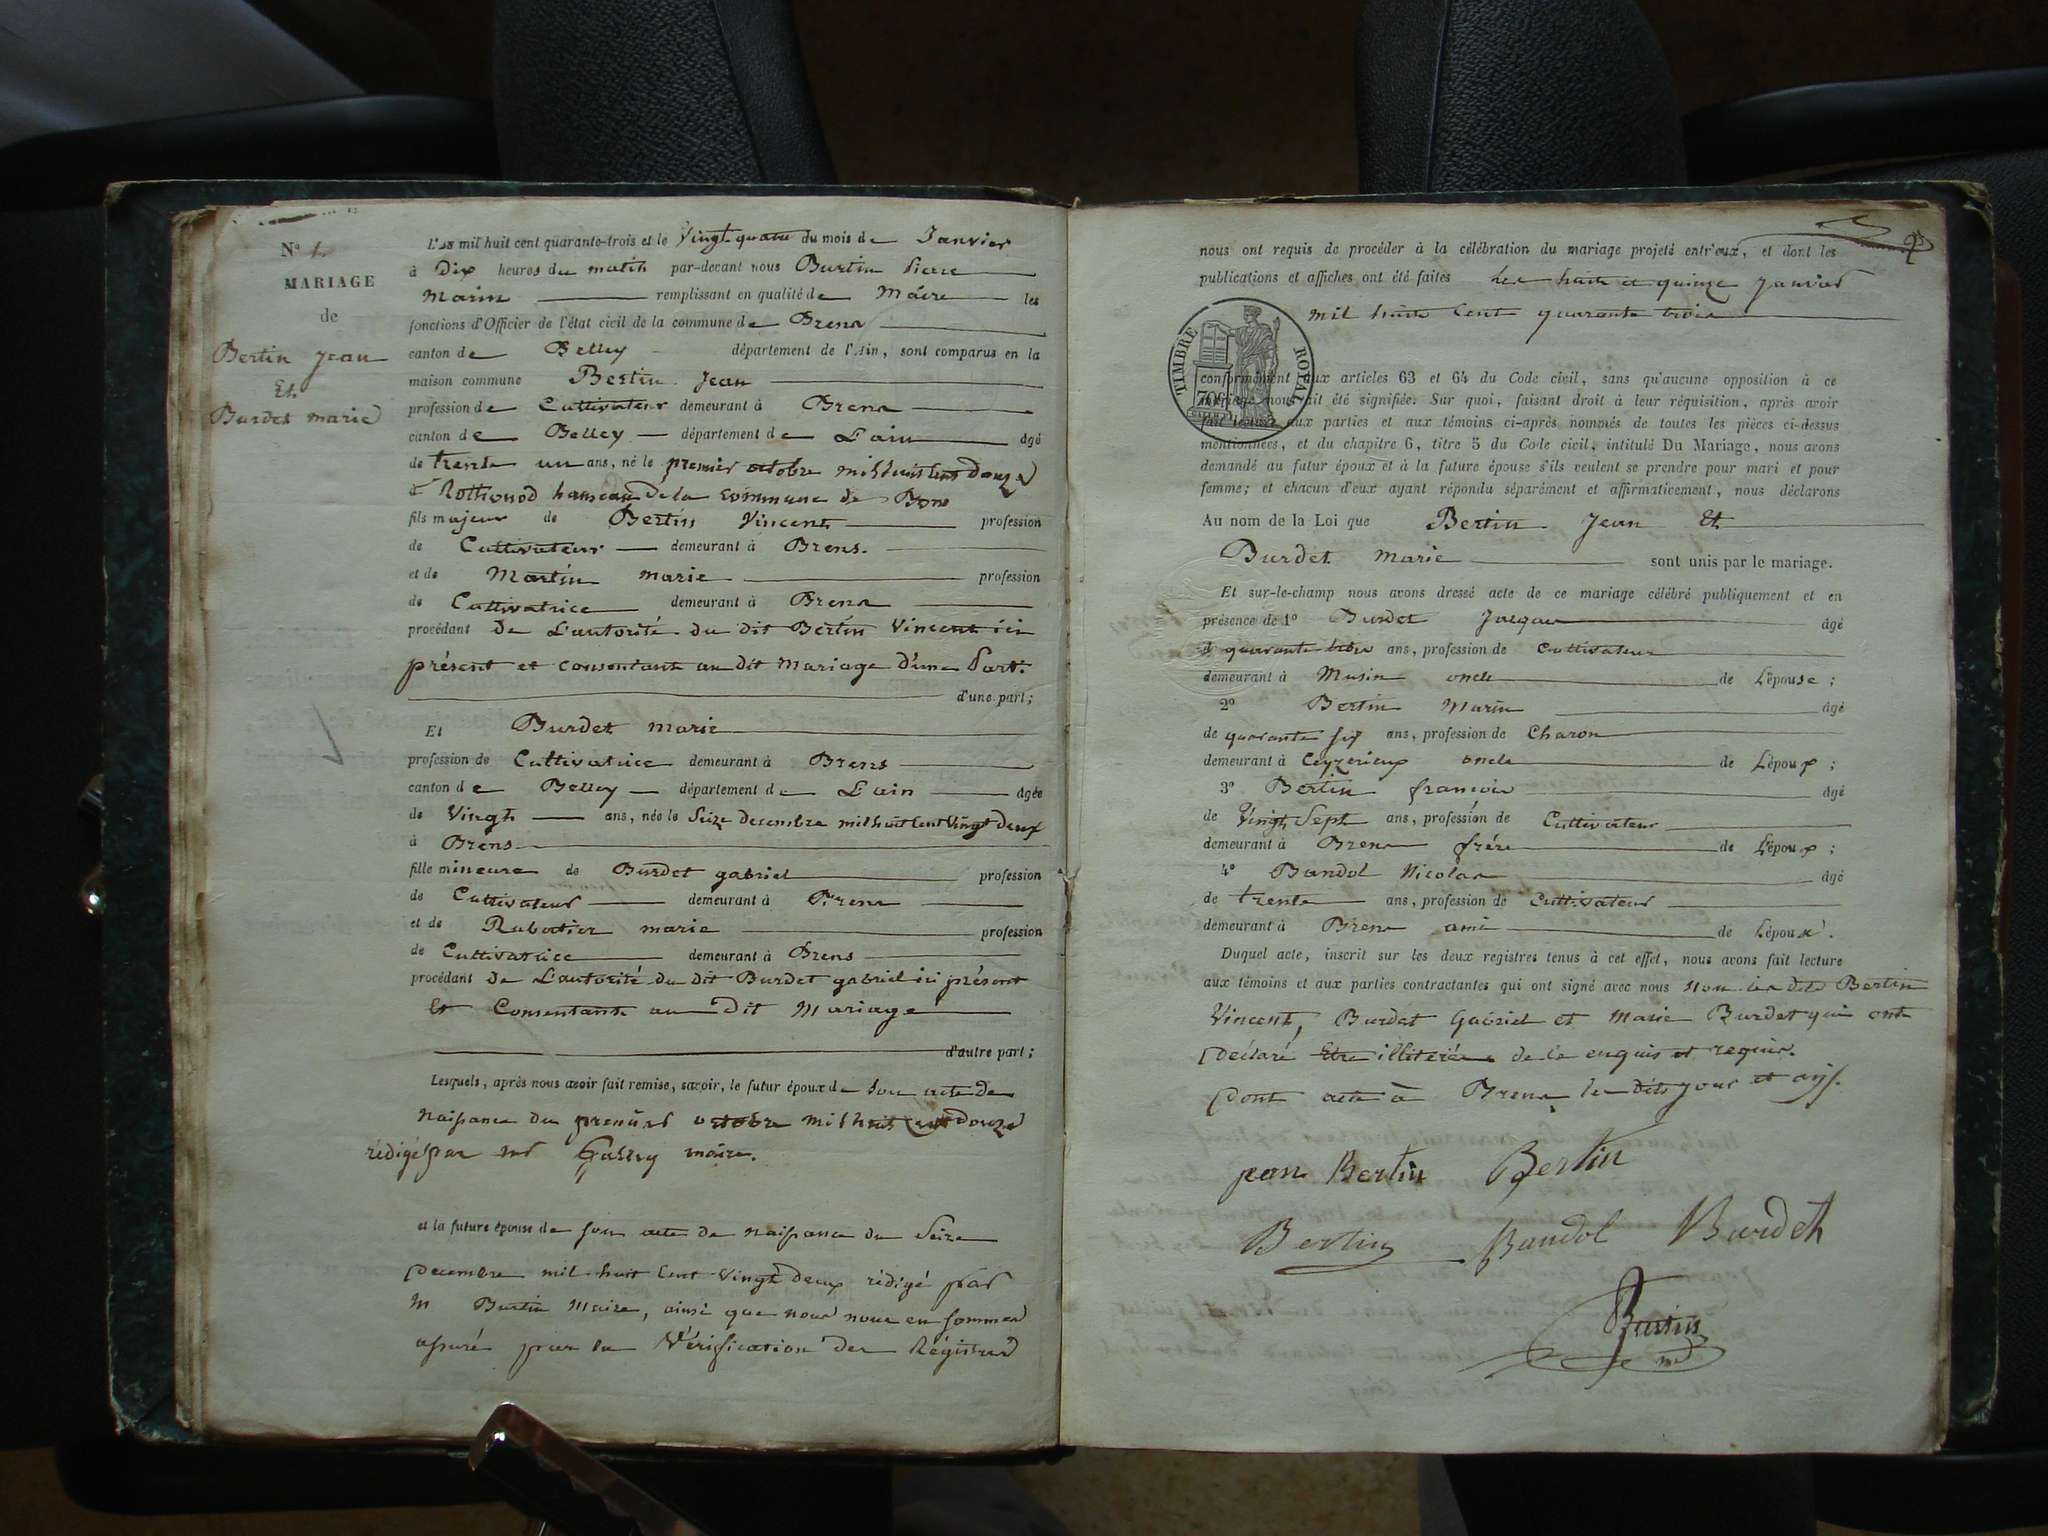 N° 1.
MARIAGE
de
Bertin Jean
Et
Burdet marie
L'an mil huit cent quarante-trois et le Vingt quatre du mois de Janvier
à Dix heures du matin par-devant nous Burtin Pierre
Marin remplissant en qualité de Maire les
fonctions d'Officier de l'état civil de la commune de Brens
canton de Belley département de l'Ain, sont comparus en la
maison commune Bertin Jean
profession de Cultivateur demeurant à Brens
canton de Belley département de L'ain âgé
de trente un ans, né le premier octobre mil huit cent douze
à hameau De la commune de
fils majeur de Bertin Vincent profession
de Cultivateur demeurant à Brens.
et de Martin marie profession
de Cultivatrice demeurant à Brens
procédant De L'autorité du dit Bertin Vincent ici
présent et consentant au dit Mariage d'une Part.
d'une part;
Et Burdet marie
profession de Cultivatrice demeurant à Brens
canton de Belley département de L'ain âgée
de Vingt ans, née le Seize decembre mil huit cent Vingt deux
à Brens
fille mineure de Burdet gabriel profession
de Cultivateur demeurant à Brens
et de Rubatier marie profession
de Cultivatrice demeurant à Brens
procédant de L'autorité du dit Burdet gabriel ici présent
Et Consentant au Dit Mariage
d'autre part;
Lesquels, après nous avoir fait remise, savoir, le futur époux de Son acte De
Naissance du premier octobre mil huit cent Douze
rédigé par mr maire.
et la future épouse de son acte de naissance du Seize
Decembre mil huit Cent Vingt Deux rédigé par
M Burtin Maire, ainsi que nous nous en sommes
assuré par la Vérification des Régistres
nous ont requis de procéder à la célébration du mariage projeté entr'eux, et dont les
publications et affiches ont été faites Les huit et quinze Janvier
mil huit Cent quarante trois
TIMBRE ROYAL
70c
conformément aux articles 63 et 64 du Code civil, sans qu'aucune opposition à ce
mariage nous ait été signifiée. Sur quoi, faisant droit à leur réquisition, après avoir
fait lecture aux parties et aux témoins ci-après nommés de toutes les pièces ci-dessus
mentionnées, et du chapitre 6, titre 5 du Code civil, intitulé Du Mariage, nous avons
demandé au futur époux et à la future épouse s'ils veulent se prendre pour mari et pour
femme; et chacun d'eux ayant répondu séparément et affirmativement, nous déclarons
Au nom de la Loi que Bertin Jean Et
Burdet marie sont unis par le mariage.
Et sur-le-champ nous avons dressé acte de ce mariage célébré publiquement et en
présence de 1° Burdet Jacques âgé
d quarante trois ans, profession de Cultivateur
demeurant à Musin oncle de L'épouse;
2° Bertin Marin âgé
de quarante six ans, profession de Charon
demeurant à Ceyzerieux oncle de L'époux;
3° Bertin françois âgé
de Vingt Sept ans, profession de Cultivateur
demeurant à Brens frère de L'époux;
4° Bandol Nicolas âgé
de trente ans, profession de Cultivateur
demeurant à Brens ami de L'époux.
Duquel acte, inscrit sur les deux registres tenus à cet effet, nous avons fait lecture
aux témoins et aux parties contractantes qui ont signé avec nous Bertin
Vincent, Burdet Gabriel et Marie Burdet qui ont
Déclaré Etre de ce enquis et requis.
Dont acte à Brens les dits jour et an.
jean Bertin Bertin
Bertin Bandol Burdet
Burtin